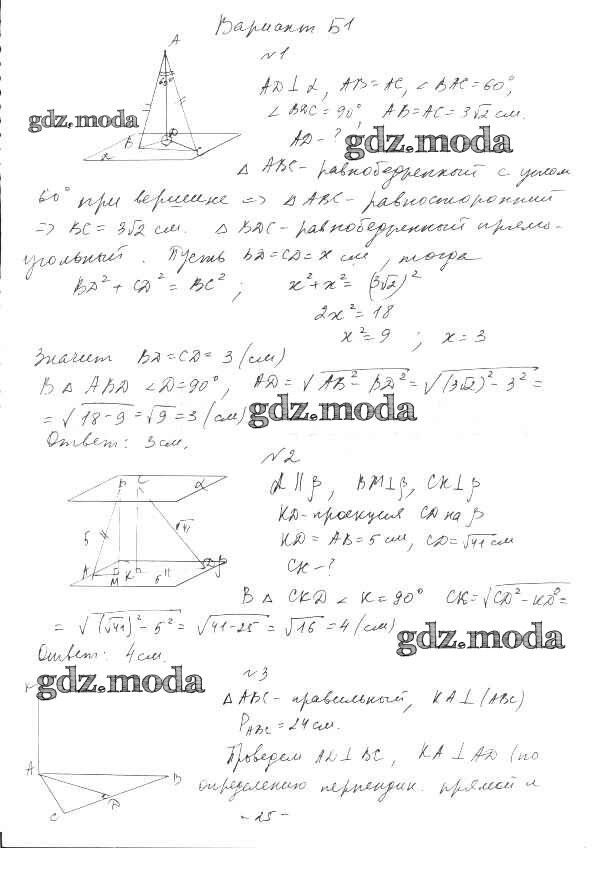 Вариант Б1
№1
AD ⊥ α, AB = AC, ∠BAC = 60°,
∠BDC = 90°, AB = AC = 3√2 см.
AD - ?
gdz.moda
gdz.moda
△ ABC - равнобедренный с углом
60° при вершине => △ ABC - равносторонний
=> BC = 3√2 см. △ BDC - равнобедренный прямо-
угольный. Пусть BD = CD = x см, тогда
BD² + CD² = BC²; x² + x² = (3√2)²
2x² = 18
x² = 9; x = 3
Значит BD = CD = 3 (см)
В △ ABD ∠D = 90°, AD = √AB² - BD² = √(3√2)² - 3² =
= √18 - 9 = √9 = 3 (см)
gdz.moda
Ответ: 3 см.
№2
α || β, BM ⊥ β, CK ⊥ β
KD - проекция CD на β
KD = AB = 5 см, CD = √41 см
CK - ?
В △ CKD ∠K = 90° CK = √CD² - KD² =
= √(√41)² - 5² = √41 - 25 = √16 = 4 (см)
gdz.moda
Ответ: 4 см.
gdz.moda
№3
△ ABC - правильный, KA ⊥ (ABC)
P ABC = 24 см.
Проведем AD ⊥ BC, KA ⊥ AD (по
определению перпендик. прямой и
- 25 -